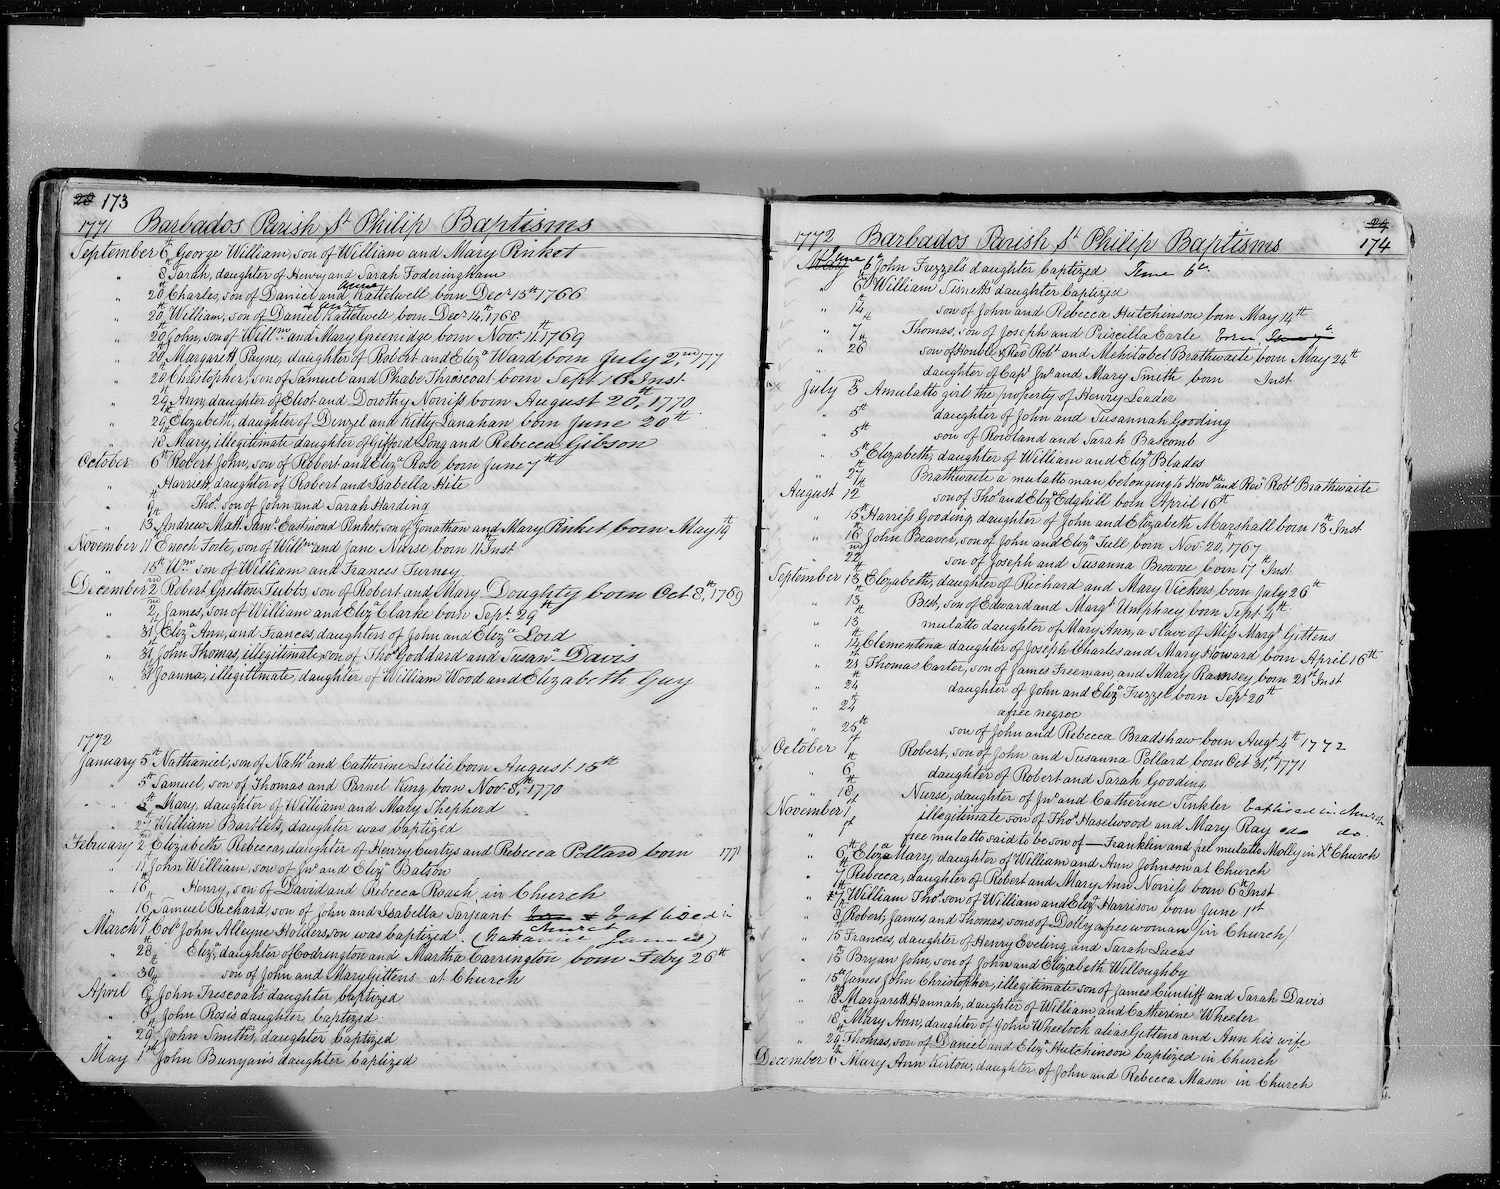 173
1771 Barbados Parish St Philip Baptisms
September 6th George William, son of William and Mary Pinket
" 8 Sarah, daughter of Henry and Sarah Foderingham
" 20th Charles, son of Daniel and Anne Kattelwell born Decr 15th 1766
" 20th William, son of Daniel & Ann Kattelwell born Decr 14th 1768
" 20th John, son of Willm and Mary Greenidge born Novr 11th 1769
" 20th Margarett Payne, daughter of Robert and Eliza Ward born July 2nd, 177
" 20th Christopher, son of Samuel and Phabe Thriscoat born Sept 16 Inst
" 29 Ann, daughter of Eliot and Dorothy Norriss born August 20th, 1770
" 29th Elizabeth, daughter of Denzel and Kitty Lanahan born June 20th
" 18 Mary, illegitimate daughter of Gifford Long and Rebecca Gibson
October 6th Robert John, son of Robert and Eliza Rose born June 7th
" Harriett, daughter of Robert and Isabella Hite
" 9th Thos son of John and Sarah Harding
" 13th Andrew Matt. Saml Eastmond Pinket, son of Jonathan and Mary Pinket born May 19th
November 11th Enoch Forte, son of Willm and Jane Nurse born 11th Inst
" 15th Wm son of William and Frances Turney
December 2nd Robert Gretton Tubbs, son of Robert and Mary Doughty born Oct 8th, 1769
" 2nd James, son of William and Eliza Clarke born Sept. 29th
" 31st Eliza Ann, and Frances, daughters of John and Eliza Lord
" 31st John Thomas, illegitimate, son of Thos Goddard and Susanh Davis
" 31st Joanna, illegitimate, daughter of William Wood and Elizabeth Guy
1772
January 5th Nathaniel, son of Nathl and Catherine Leslie born August 15th
" 5th Samuel, son of Thomas and Parnel King born Novr 8th, 1770
" 5th Mary, daughter of William and Mary Shepherd
" 2nd William Bartlets, daughter was baptized
February 2nd Elizabeth Rebecca, daughter of Henry Curtys and Rebecca Pollard born 1771
" 11th John William, son of Jno and Eliza Batson
" 16 Henry, son of David and Rebecca Roach, in Church
" 16 Samuel Richard, son of John and Isabella Sarjeant Baptised in
Church
March 1st Colo John Alleyne Holders, son was baptized.
" 28th Eliza daughter of Codrington and Martha Carrington born Feby 26th
" 30th son of John and Mary Gittens at Church
April 6th John Trescoat's daughter, baptized
" 6th John Rose's daughter, baptized
" 29th John Smith's, daughter baptized
May 1st John Bunyan's daughter baptized
174
1772 Barbados Parish St Philip Baptisms
May June 6th John Frezzel's daughter baptized June 6th
" 6th William Sinnett's daughter baptized
" 14th son of John and Rebecca Hutchinson, born May 14th
" 7th Thomas, son of Joseph and Priscilla Earle born
" 26th son of Honble & Revd Robt and Mehetabel Brathwaite born May 24th
" daughter of Capt Jno and Mary Smith born Inst
July 5 A mulatto girl the property of Henry Leader
" 5th daughter of John and Susannah Gooding
" 5th son of Rowland and Sarah Bascomb
" 5th Elizabeth, daughter of William and Eliza Blades
" 27th Brathwaite a mulatto man belonging to Honble and Revd Robt Brathwaite
August 12th son of Thos and Eliza Edghill born April 16th
" 15th Harriss Gooding, daughter of John and Elizabeth Marshall born 13th Inst
" 16th John Beaver, son of John and Eliza Tull born Nov. 22nd, 1767
" 22nd son of Joseph and Susanna Browne born 17th Inst
September 13th Elizabeth, daughter of Richard and Mary Vickers, born July 26th
" 13th Best, son of Edward and Margt Umphrey born Sept 4th
" 13th mulatto daughter of Mary Ann, a slave of Miss Margt Gittens
" 14th Clementina daughter of Joseph Charles and Mary Howard born April 16th
" 21st Thomas Carter, son of James Freeman, and Mary Ramsey born 21st Inst
" 24th daughter of John and Eliza Frezzel born Sept 20th
" 24th a free negroe
" 25th son of John and Rebecca Bradshaw born Augt 4th 1772
October 1st Robert, son of John and Susanna Pollard born Oct 31st, 1771
" 6th daughter of Robert and Sarah Gooding
" 18th Nurse, daughter of Jno and Catherine Tinkler Baptised in Church
November 1st illegitimate son of Thos Haselwood and Mary Ray do do.
" 1st free mulatto said to be son of — Franklin and free mulatto Molly in Xt Church
" 6th Eliza Mary, daughter of William and Ann Johnson at Church
" 7th Rebecca, daughter of Robert and Mary Ann Norriss born 6th Inst
" 7th William Thos son of William and Eliza Harrison born June 1st
" 8th Robert, James, and Thomas, sons of Dolly a free woman (in Church)
" 15 Frances, daughter of Henry Eveling and Sarah Lucas
" 15 Bryan John, son of John and Elizabeth Willoughby
" 15th James John Christopher, illegitimate son of James Cunliff and Sarah Davis
" 18th Margarett Hannah, daughter of William and Catherine Wheeler
" 18th Mary Ann, daughter of John Wheelock alias Gettens and Ann his wife
" 29th Thomas, son of Daniel and Eliza Hutchinson baptized in Church
December 6th Mary Ann Kirton, daughter of John and Rebecca Mason in Church